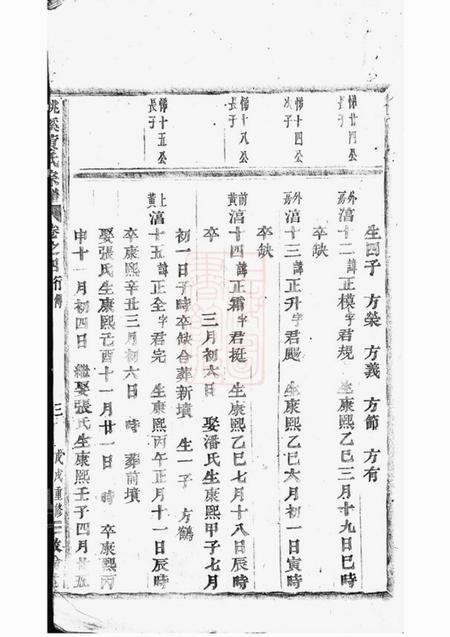 生四子 方榮 方義 方節 方有
悌廿四公長子
外嘉 滈十二 諱正模 字君規 生康熙乙巳三月十九日巳時
卒缺
悌十四公次子
外嘉 滈十三 諱正升 字君颺 生康熙乙巳六月初一日寅時
卒缺
悌十八公長子
前黃 滈十四 諱正霜 字君挺 生康熙乙巳七月十八日辰時
卒 三月初六日 娶潘氏生康熙甲子七月
初一日子時卒缺合葬新墳 生一子 方鶴
悌十五公長子
上黃 滈十五 諱正全 字君完 生康熙丙午正月十一日辰時
卒康熙辛丑三月初六日 時 葬前墳
娶張氏生康熙己酉十一月廿一日 時 卒康熙丙
申十一月初四日 繼娶張氏生康熙壬子四月廿五
氏宗譜 卷之四 行傳 三 戊戌重修